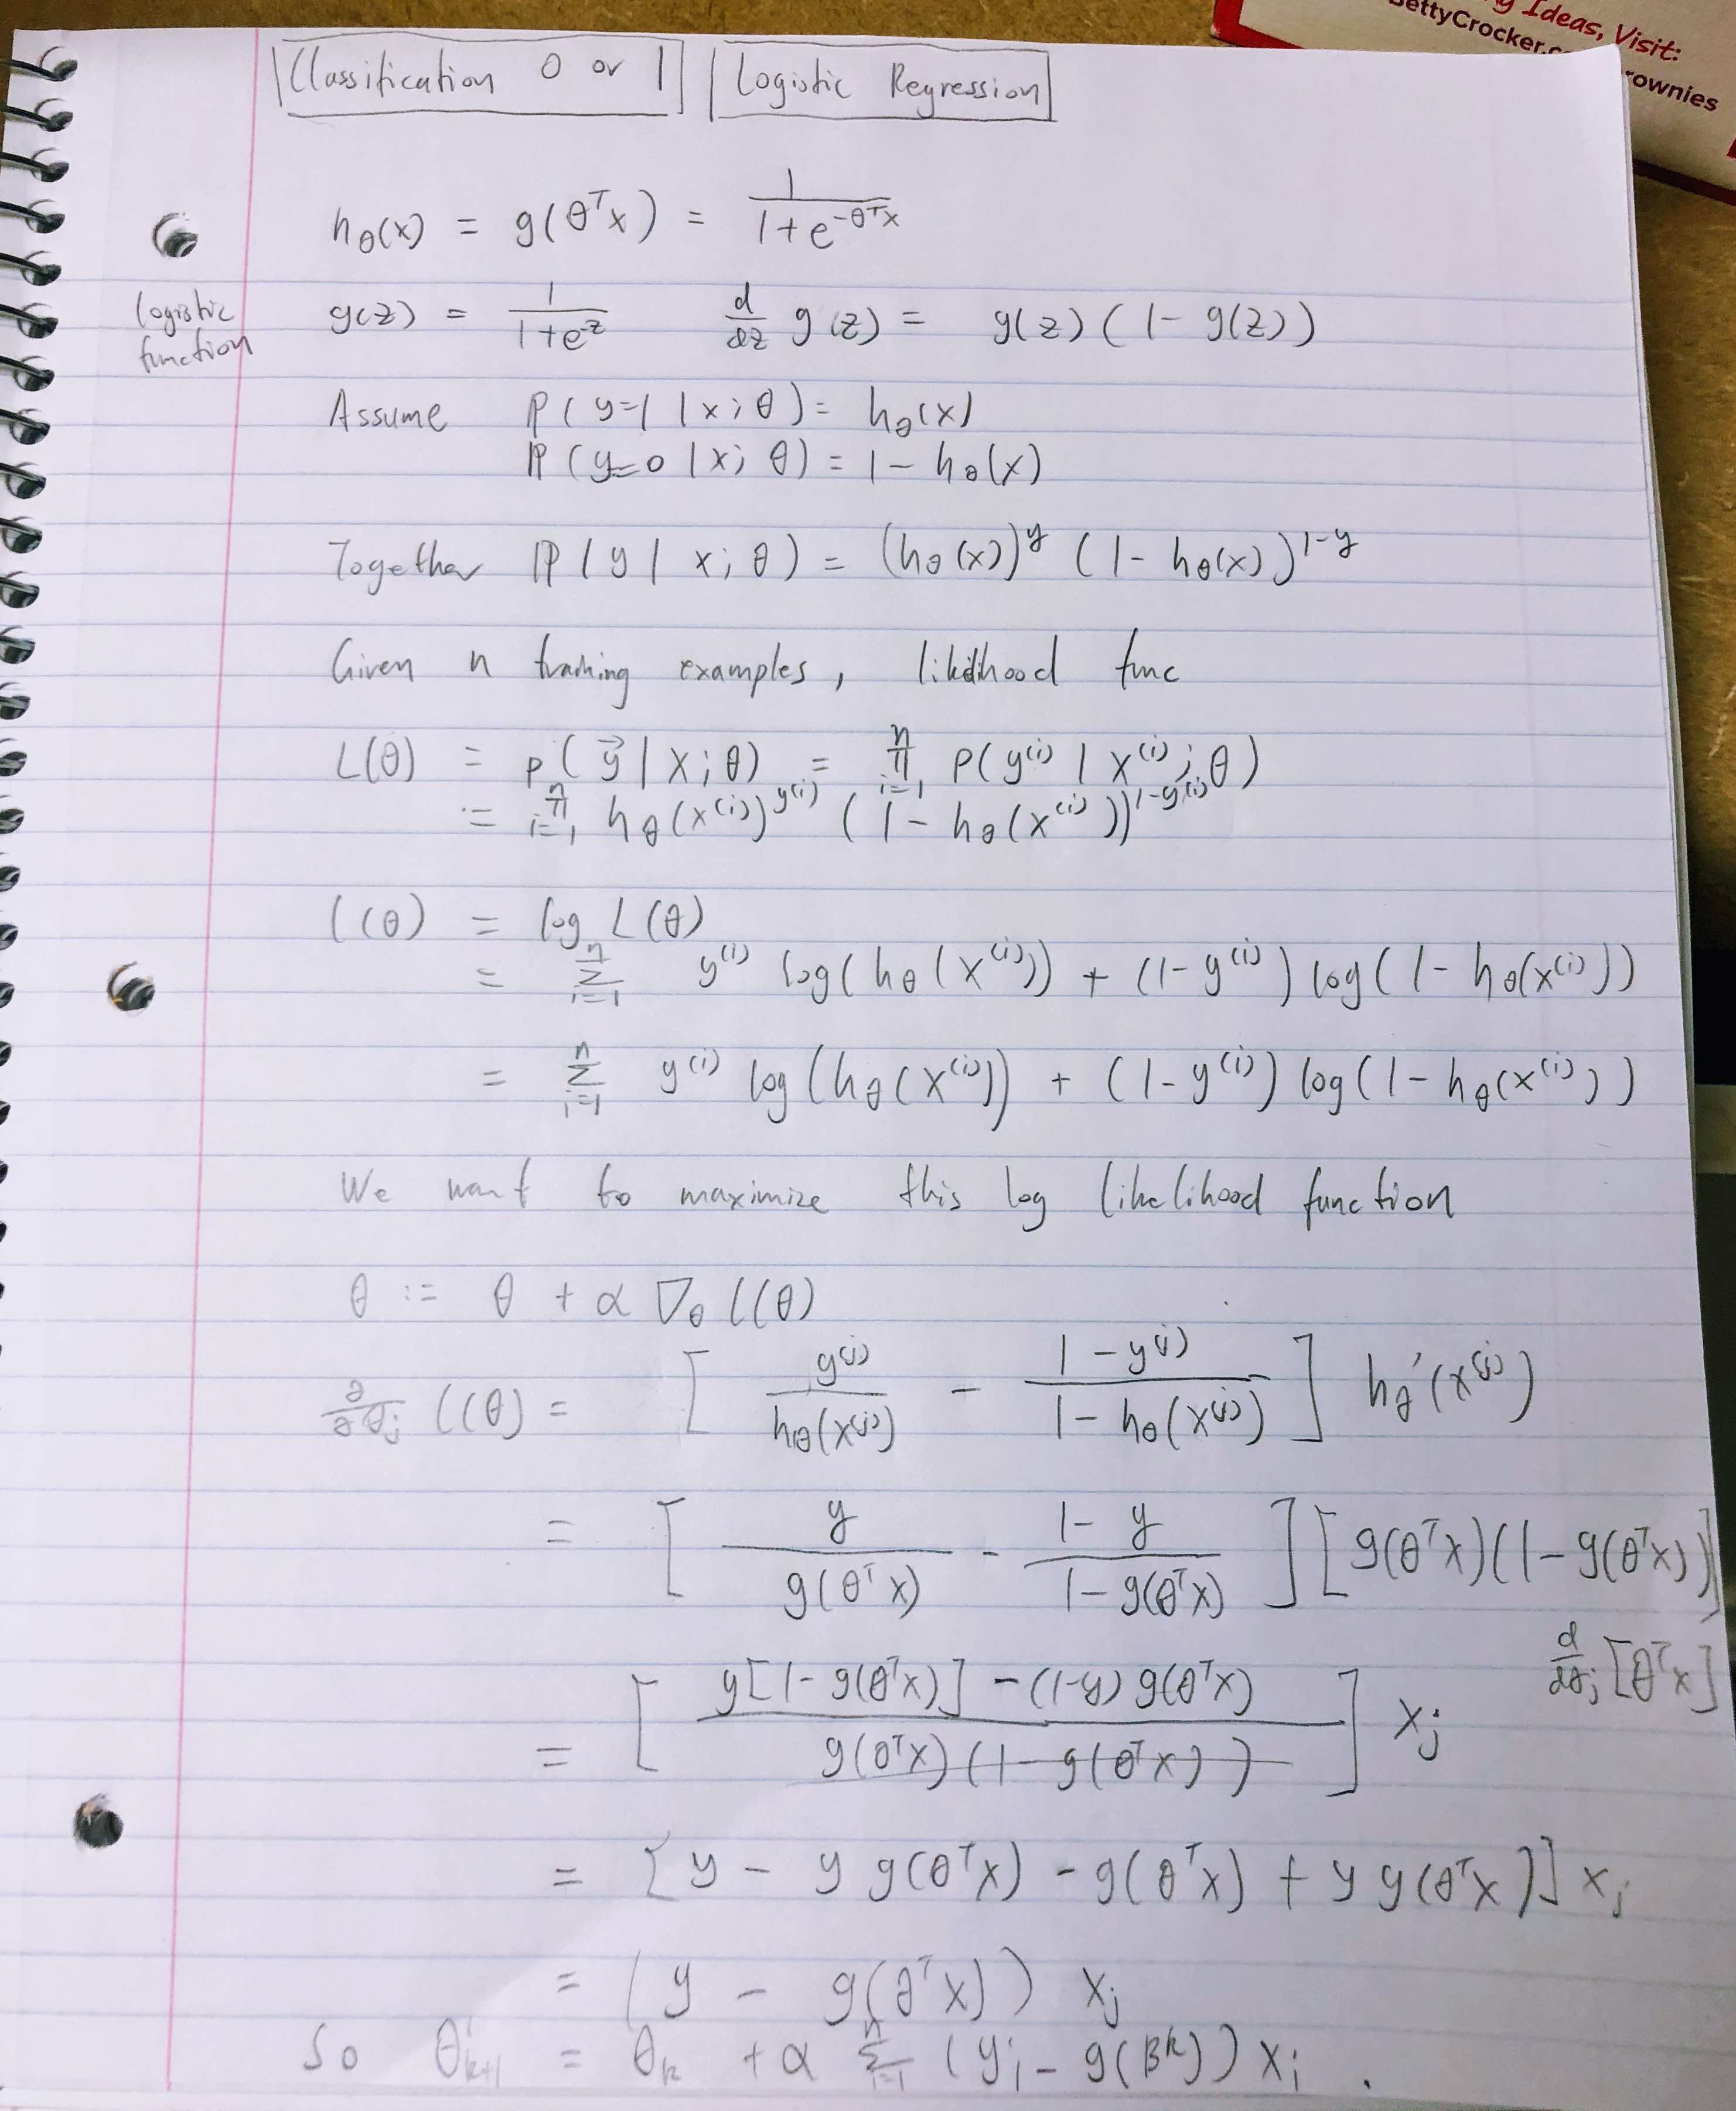 g Ideas, Visit:
BettyCrocker.c
rownies
Classification 0 or 1 Logistic Regression
h_θ(x) = g(θ^T x) = 1/(1+e^{-θ^T x})
logistic function
g(z) = 1/(1+e^{-z}) d/dz g(z) = g(z)(1- g(z))
Assume P(y=1 | x; θ) = h_θ(x)
P(y=0 | x; θ) = 1 - h_θ(x)
Together P(y | x; θ) = (h_θ(x))^y (1- h_θ(x))^{1-y}
Given n training examples, func
L(θ) = p(y⃗ | X; θ) = ∏_{i=1}^n P(y^{(i)} | x^{(i)}; θ)
= ∏_{i=1}^n h_θ(x^{(i)})^{y^{(i)}} (1 - h_θ(x^{(i)}))^{1-y^{(i)}}
l(θ) = log L(θ)
= ∑_{i=1}^n y^{(i)} log(h_θ(x^{(i)})) + (1-y^{(i)}) log(1- h_θ(x^{(i)}))
= ∑_{i=1}^n y^{(i)} log(h_θ(x^{(i)})) + (1-y^{(i)}) log(1- h_θ(x^{(i)}))
We want to maximize this log likelihood function
θ := θ + α ∇_θ l(θ)
∂/∂θ_j l(θ) = [ y^{(j)}/h_θ(x^{(j)}) - (1-y^{(j)})/(1-h_θ(x^{(j)})) ] h_θ'(x^{(j)})
= [ y/g(θ^T x) - (1-y)/(1-g(θ^T x)) ] [g(θ^T x)(1-g(θ^T x))]
d/dθ_j [θ^T x]
= [ (y[1-g(θ^T x)] - (1-y) g(θ^T x))/(g(θ^T x)(1-g(θ^T x))) ] x_j
= [y - y g(θ^T x) - g(θ^T x) + y g(θ^T x)] x_j
= (y - g(θ^T x)) x_j
So θ_{k+1} = θ_k + α ∑_{i=1}^n (y_i - g(β^k)) x_i .